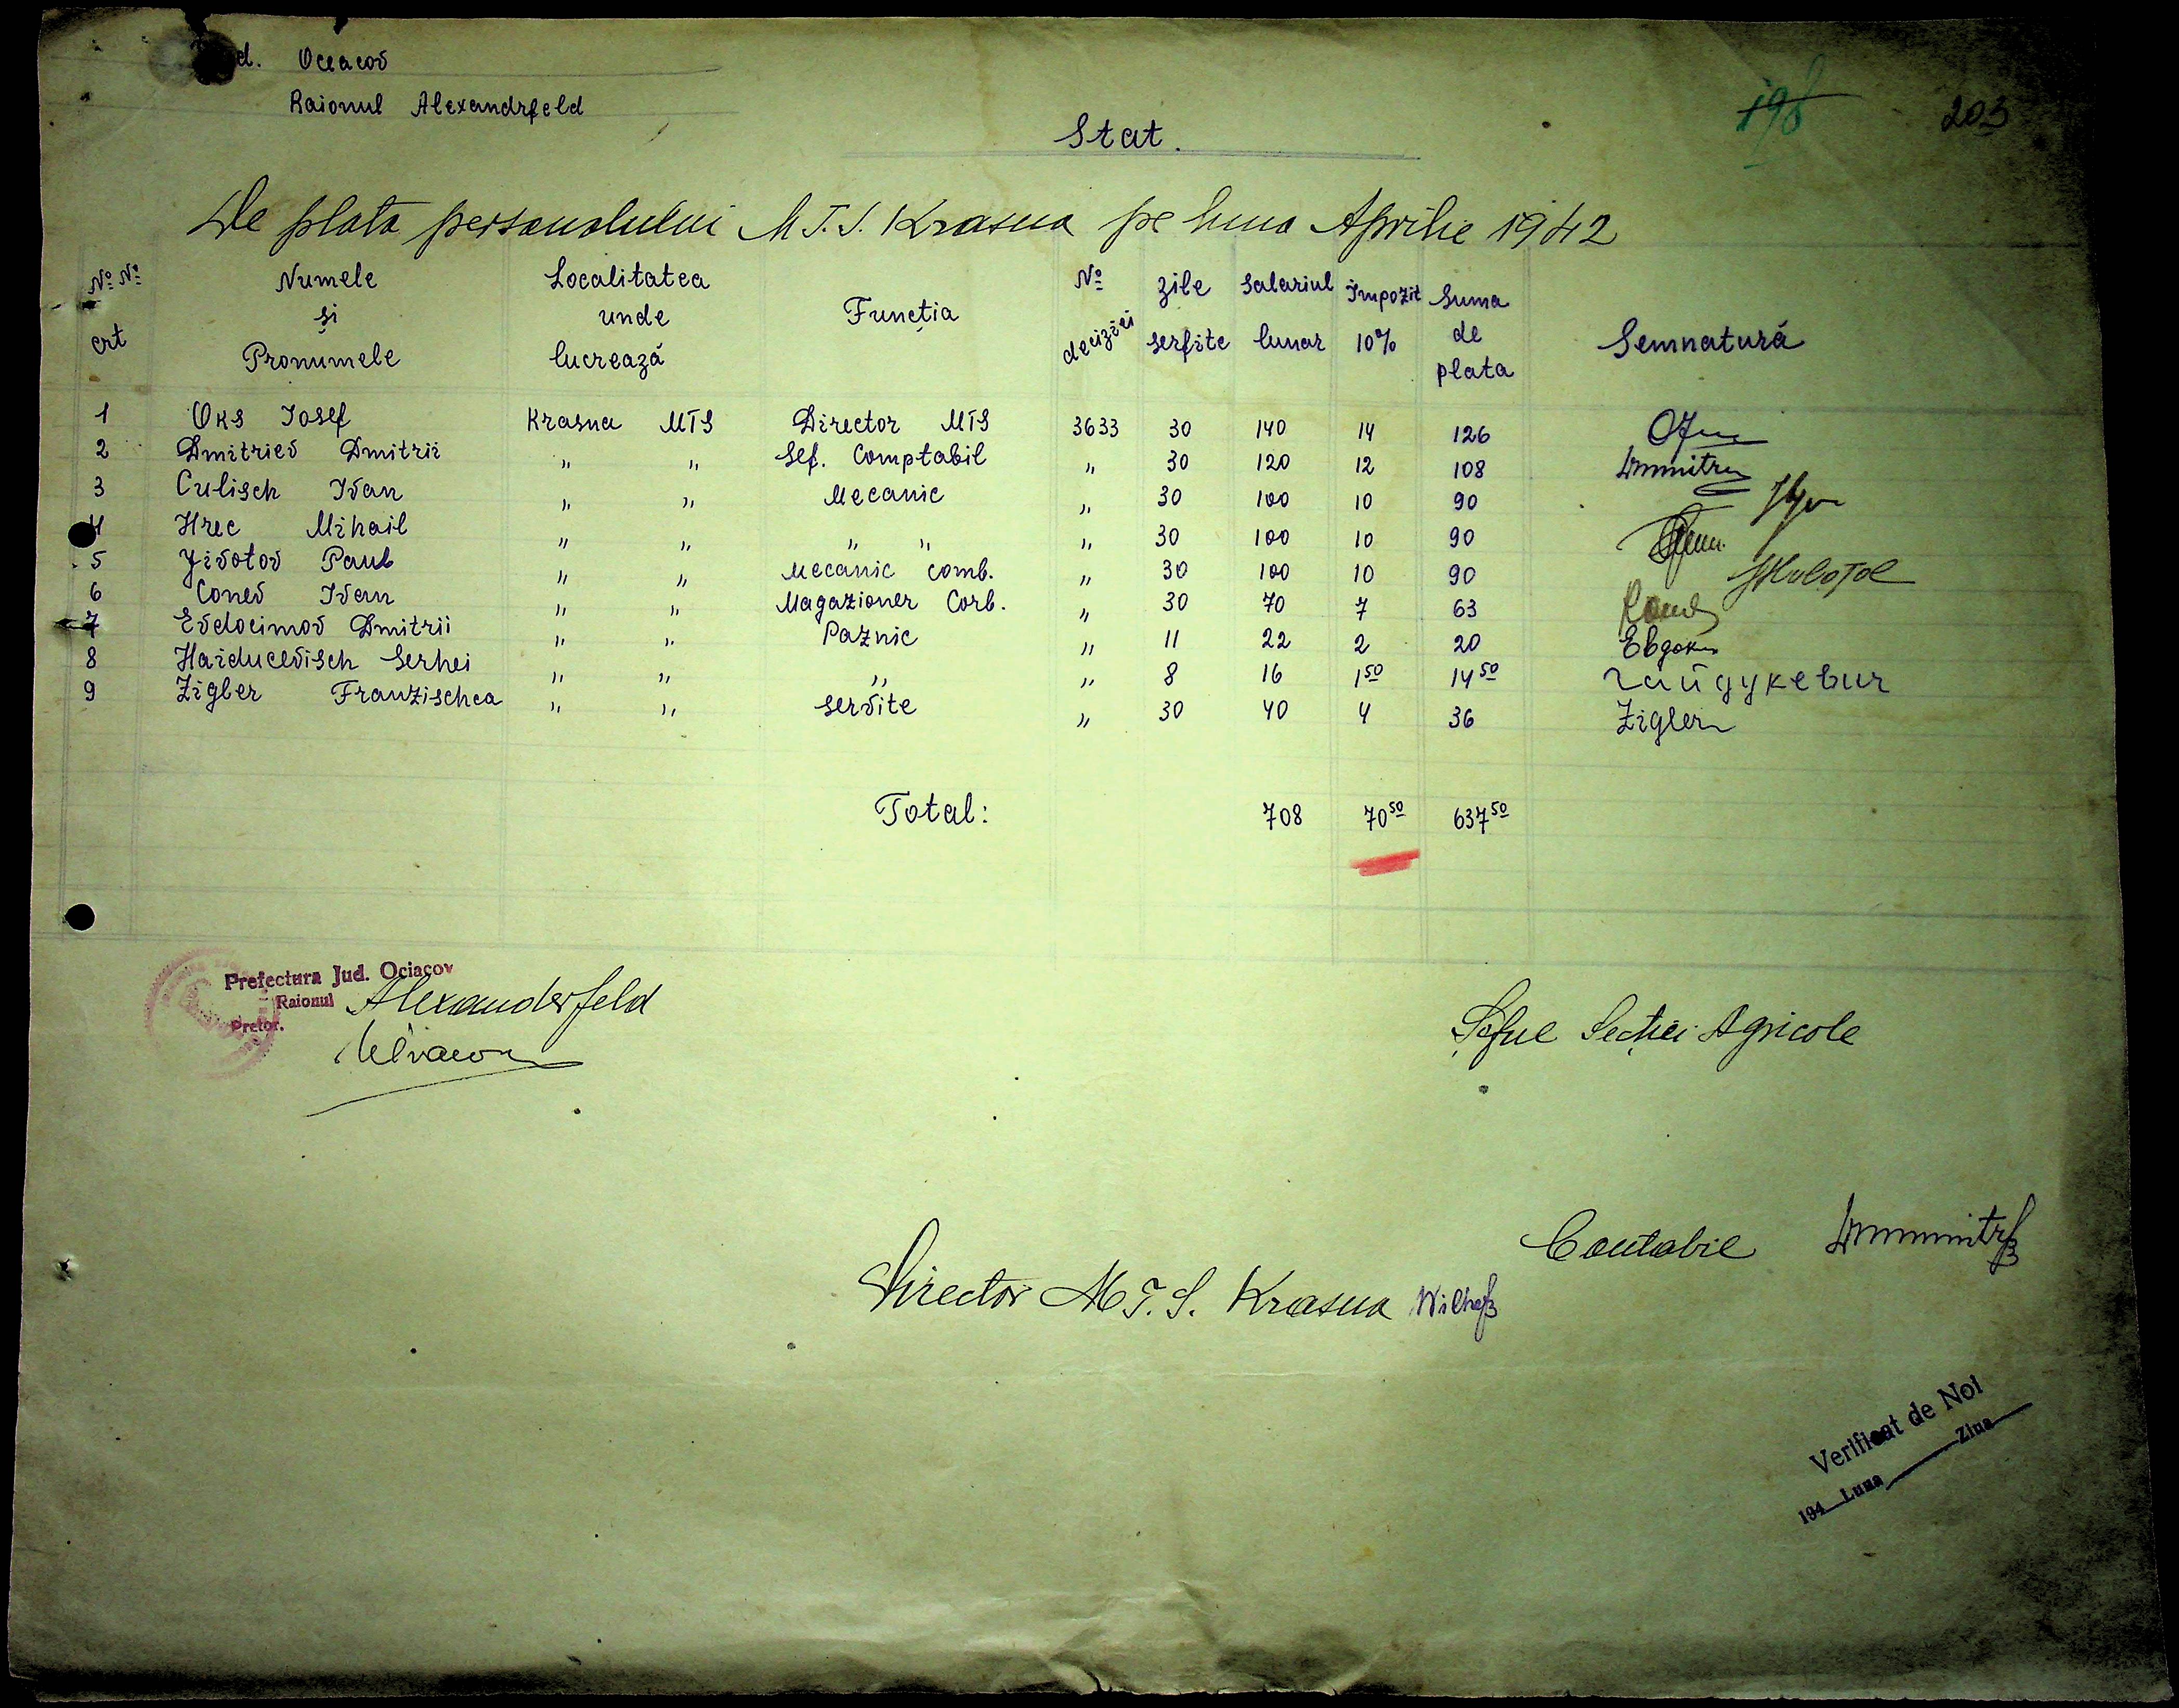 d. Ociacov
Raionul Alexandrfeld
198 203
Stat.
De plata personalului M.T.S. Krasna pe luna Aprilie 1942
No No crt Numele și Pronumele Localitatea unde lucrează Funcția No deciziei zile serfite Salariul lunar Impozit 10% Suma de plata Semnatură
1 Oks Iosef Krasna MTS Director MTS 3633 30 140 14 126
2 Dmitriev Dmitrii " " Sef. Comptabil " 30 120 12 108
3 Culisch Ivan " " Mecanic " 30 100 10 90
4 Hrec Mihail " " " " " 30 100 10 90
5 Jivotov Paul " " Mecanic comb. " 30 100 10 90
6 Conev Ivan " " Magazioner Corb. " 30 70 7 63
7 Evdocimov Dmitrii " " Paznic " 11 22 2 20 Евдоким
8 Haiducevisch Serhei " " " " 8 16 1 50 14 50 Гайдукевич
9 Zigler Franzischca " " servite " 30 40 4 36 Zigler
Total: 708 70 50 637 50
Prefectura Jud. Ociacov
Raionul Alexanderfeld
Pretor.
Șeful Secției Agricole
Contabil
Director M.T.S. Krasna
Verificat de Noi
194 Luna Ziua